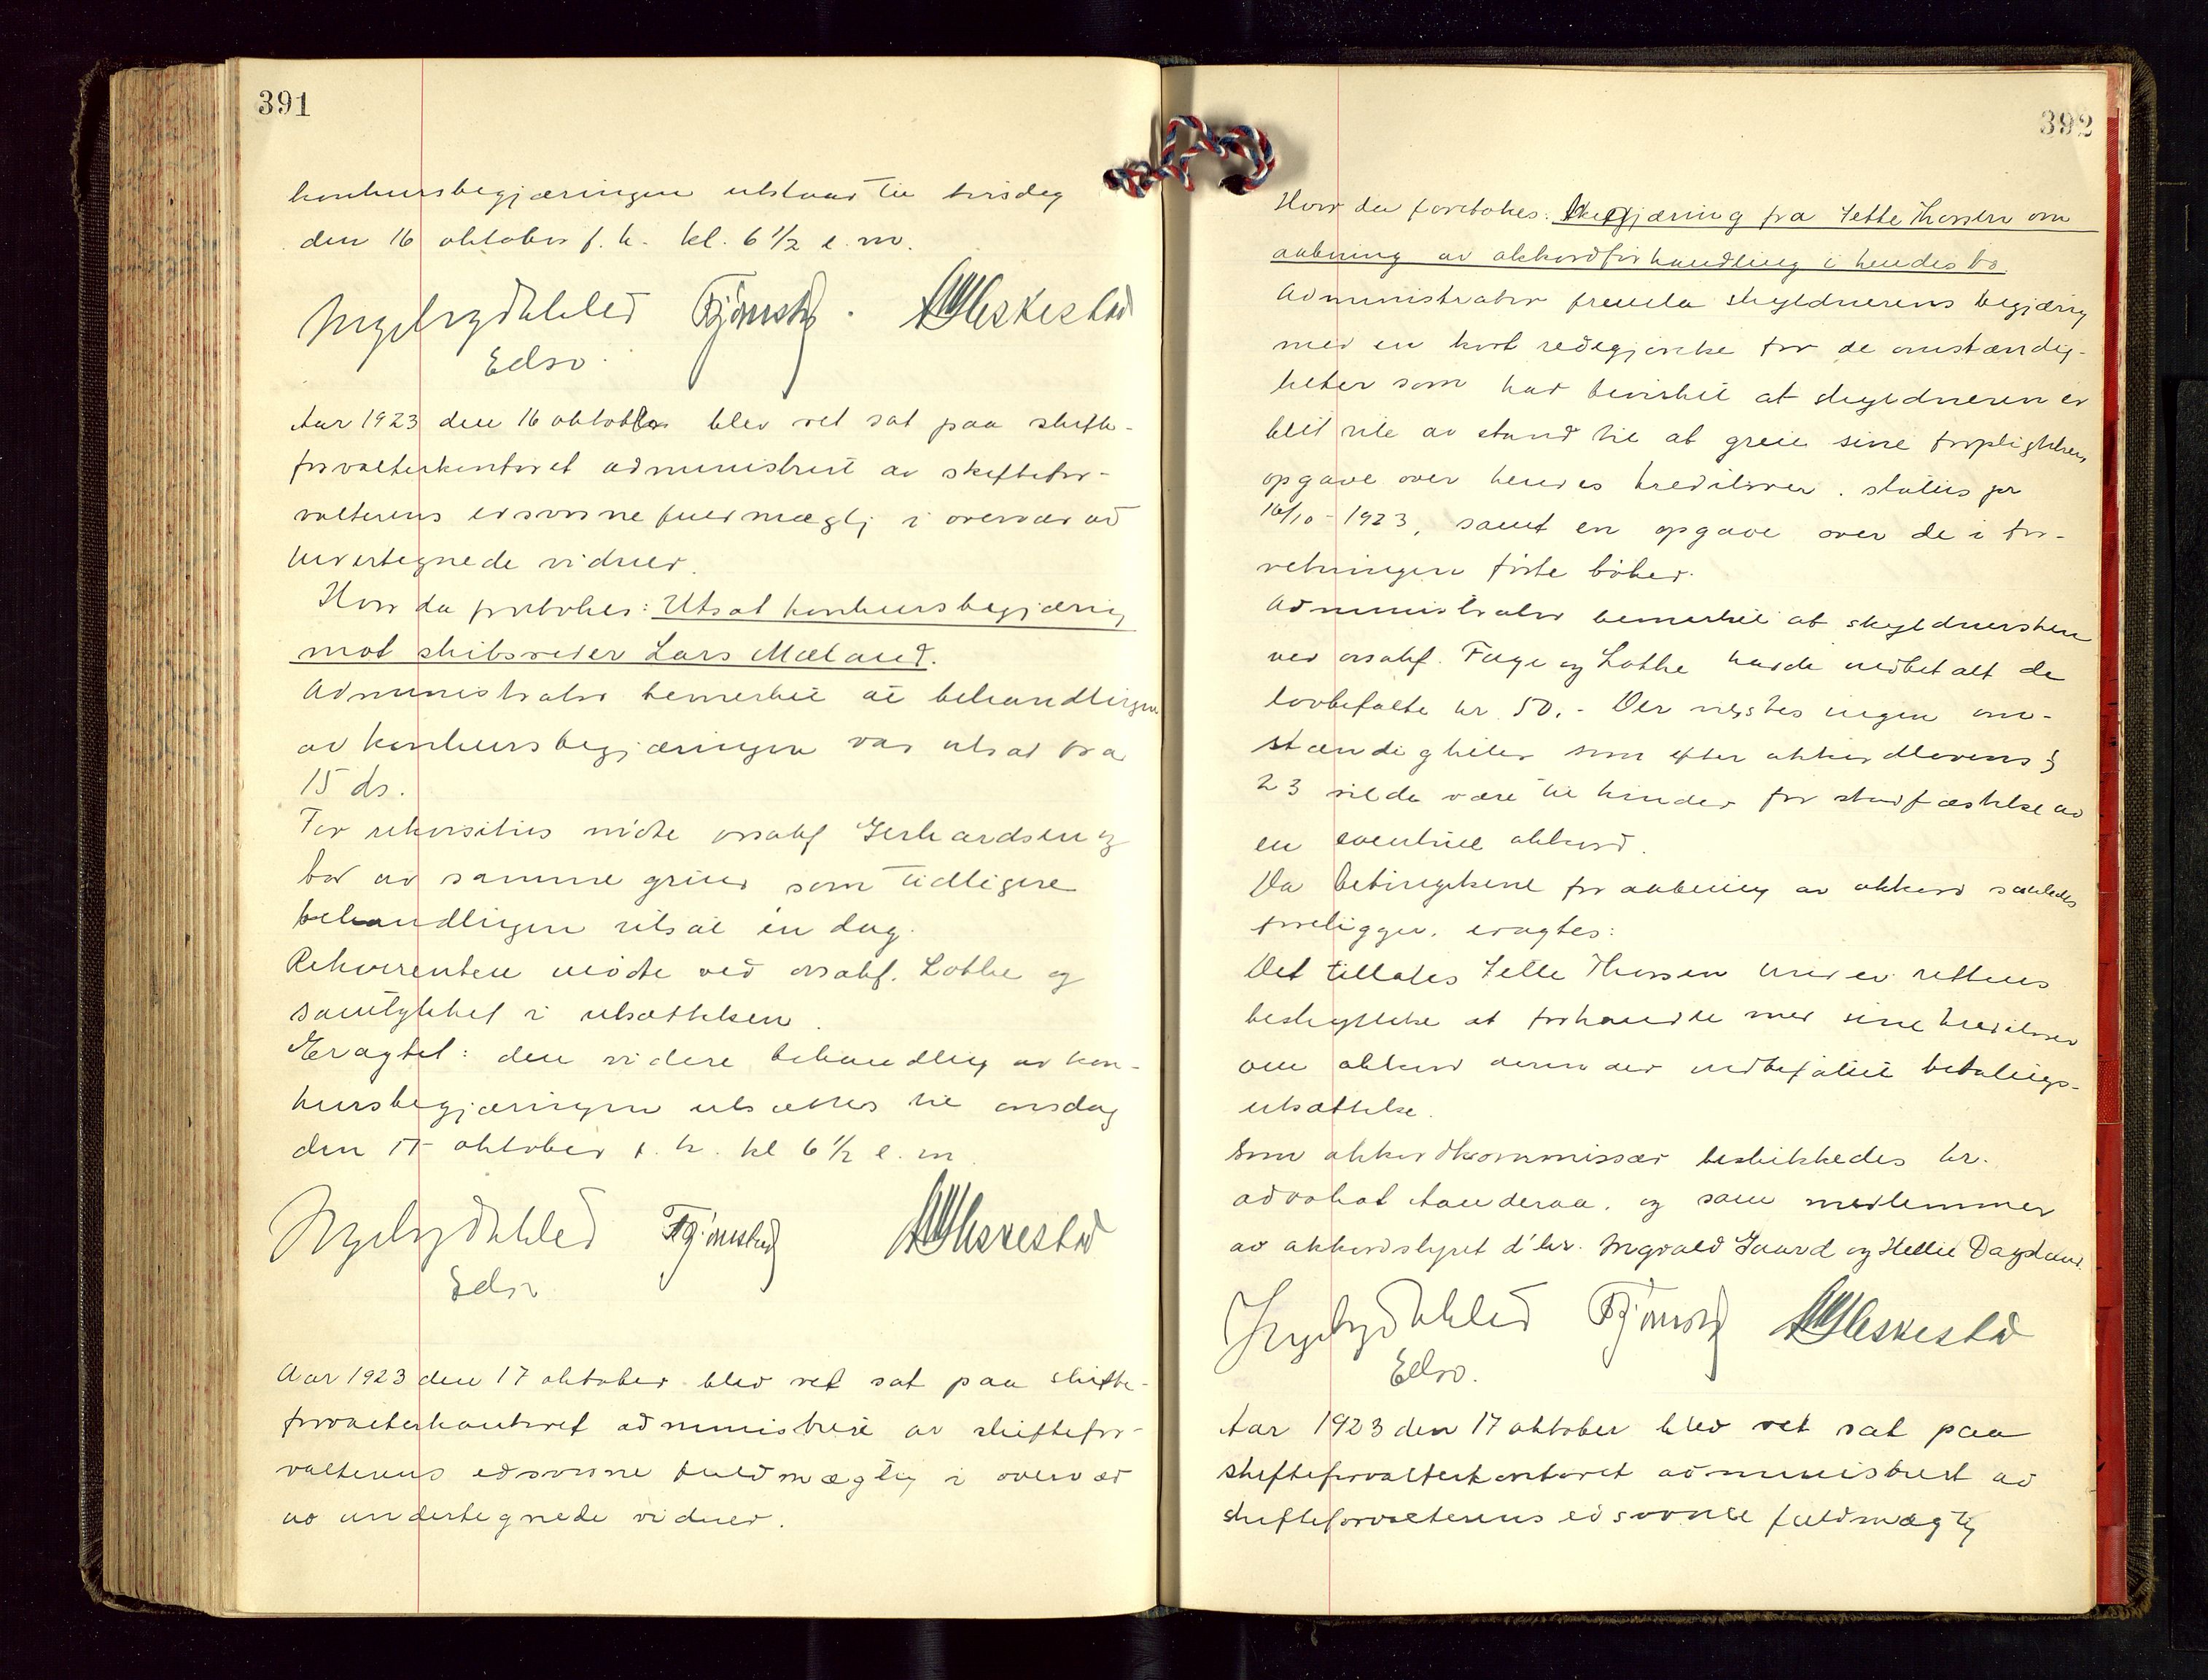 391
konkursbegjæringen utstaar til tirsdag
den 16 oktober f. k. kl. 6 1/2 e. m.
Edsv.
Aar 1923 den 16 oktober blev ret sat paa skifte-
forvalterkontoret administrert av skiftefor-
valterens edsvorne fuldmægtig i overvær av
undertegnede vidner.
Hvor da foretokes: Utsat konkursbegjæring
mot skibsreder Lars Mæland.
Administrator bemerket at behandlingen
av konkursbegjæringen var utsat fra
15 ds.
For rekvisitus møtte orsakf Gerhardsen og
bad av samme grund som tidligere
behandlingen utsat en dag.
Rekvirenten møtte ved orsakf. Lothe og
samtykket i utsættelsen.
Eragtet: den videre behandling av kon-
kursbegjæringen utsættes til onsdag
den 17 oktober f. k. kl 6 1/2 e. m.
Edsv
Aar 1923 den 17 oktober blev ret sat paa skifte-
forvalterkontoret administrert av skiftefor-
valterens edsvorne fuldmægtig i overvær
av undertegnede vidner.
392
Hvor da foretokes: Begjæring fra Jette Thorsen om
aabning av akkordforhandling i hendes bo.
Administrator fremla skyldnerens begjæring
med en kort redegjørelse for de omstændig-
heter som har bevirket at skyldneren er
blit ute av stand til at greie sine forpligtelser,
opgave over hendes kreditorer. status pr
16/10-1923, samt en opgave over de i for-
retningen førte bøker.
Administrator bemerket at skyldnersken
ved orsakf. Fuge og Lothe hadde indbetalt de
lovbefalte kr 50.- Der vistes ingen om-
stændigheter som efter akkordlovens §
23 vilde være til hinder for stadfæstelse av
en eventuel akkord.
Da betingelsene for aabning av akkord saaledes
foreligger, eragtes:
Det tillates Jette Thorsen under rettens
beskyttelse at forhandle med sine kreditorer
om akkord derunder indbefattet betalings-
utsættelse.
Som akkordkommissær beskikkedes hr.
advokat Aanderaa, og som medlemmer
av akkordstyret d'hr. Ingvald Gaard og Hellie Dagsland.
Edsv.
Aar 1923 den 17 oktober blev ret sat paa
skifteforvalterkontoret administrert av
skifteforvalterens edsvorne fuldmægtig